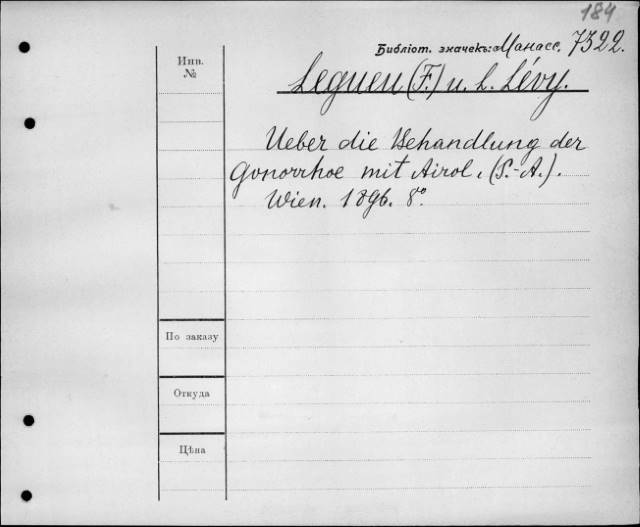 184
Библіот. значекъ: Манасс. 7322.
Инв.
№
Leguen (F.) u. L. Lévy.
Ueber die Behandlung der
Gonorrhoe mit Airol. (S.-A.).
Wien. 1896. 8°.
По заказу
Откуда
Цѣна